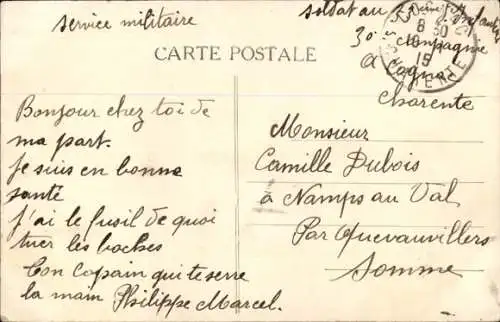 service militaire
soldat au
30 Compagnie
a Cognac
Charente
8 30
15
CARTE POSTALE
Bonjour chez toi de
ma part.
Je suis en bonne
santé
J'ai le fusil de quoi
tuer les boches
Ton Copain qui te serre
la main Philippe Marcel.
Monsieur
Camille Dubois
à Namps au Val
Par Quevauvillers
Somme